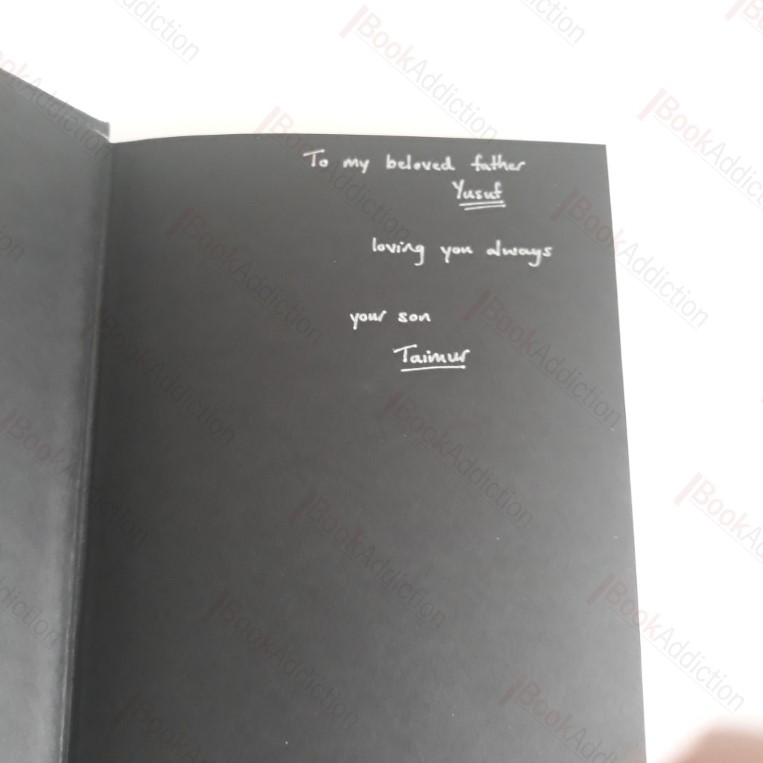 To my beloved father
Yusuf
loving you always
your son
Taimur
BookAddiction